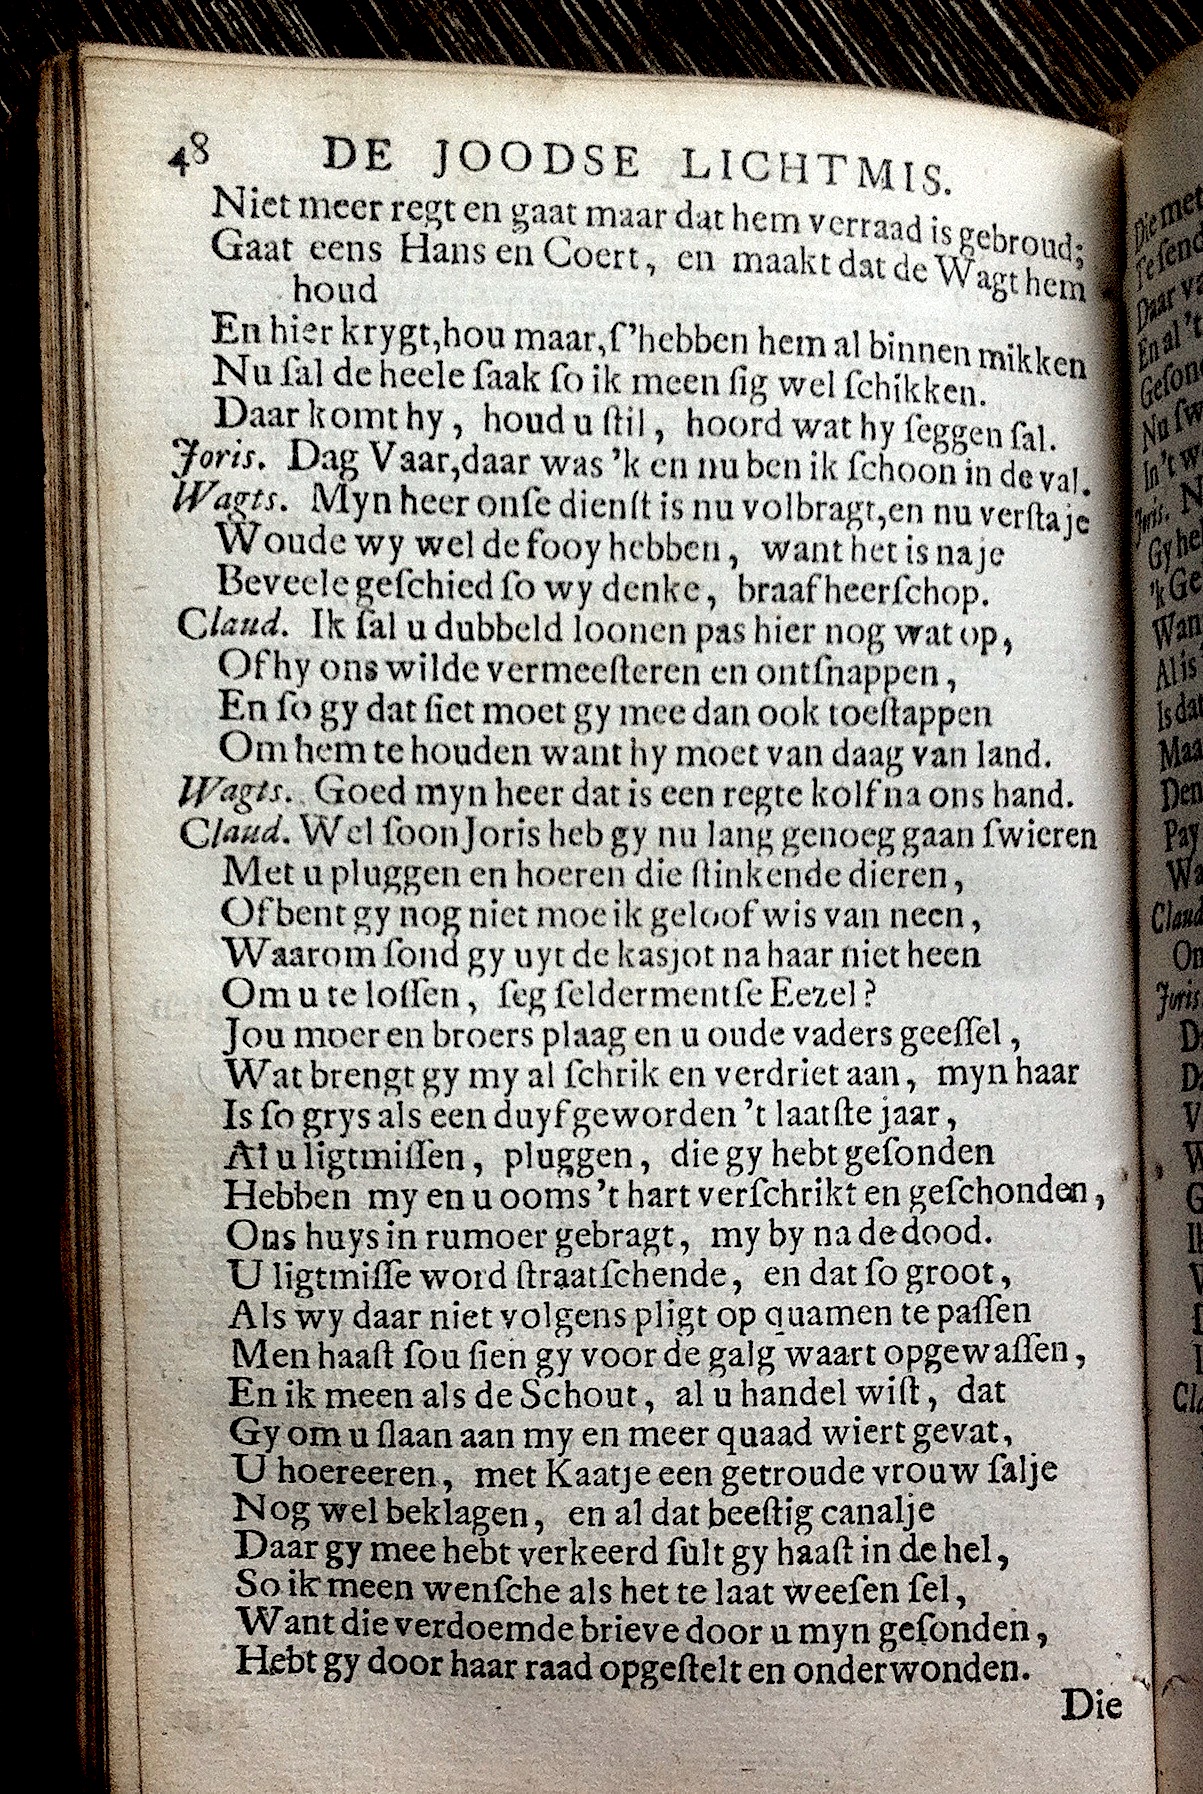 48 DE JOODSE LICHTMIS.
Niet meer regt en gaat maar dat hem verraad is gebroud;
Gaat eens Hans en Coert, en maakt dat de Wagt hem
houd
En hier krygt, hou maar, ſ'hebben hem al binnen mikken
Nu ſal de heele ſaak ſo ik meen ſig wel ſchikken.
Daar komt hy, houd u ſtil, hoord wat hy ſeggen ſal.
Joris. Dag Vaar, daar was 'k en nu ben ik ſchoon in de val.
Wagts. Myn heer onſe dienſt is nu volbragt, en nu verſtaje
Woude wy wel de fooy hebben, want het is na je
Beveele geſchied ſo wy denke, braaf heerſchop.
Claud. Ik ſal u dubbeld loonen pas hier nog wat op,
Of hy ons wilde vermeeſteren en ontſnappen,
En ſo gy dat ſiet moet gy mee dan ook toeſtappen
Om hem te houden want hy moet van daag van land.
Wagts. Goed myn heer dat is een regte kolf na ons hand.
Claud. Wel ſoon Joris heb gy nu lang genoeg gaan ſwieren
Met u pluggen en hoeren die ſtinkende dieren,
Of bent gy nog niet moe ik geloof wis van neen,
Waarom ſond gy uyt de kasjot na haar niet heen
Om u te loſſen, ſeg ſeldermentſe Eezel?
Jou moer en broers plaag en u oude vaders geeſſel,
Wat brengt gy my al ſchrik en verdriet aan, myn haar
Is ſo grys als een duyf geworden 't laatſte jaar,
Al u ligtmiſſen, pluggen, die gy hebt geſonden
Hebben my en u ooms 't hart verſchrikt en geſchonden,
Ons huys in rumoer gebragt, my by na de dood.
U ligtmiſſe word ſtraatſchende, en dat ſo groot,
Als wy daar niet volgens pligt op quamen te paſſen
Men haaſt ſou ſien gy voor de galg waart opgewaſſen,
En ik meen als de Schout, al u handel wiſt, dat
Gy om u ſlaan aan my en meer quaad wiert gevat,
U hoereeren, met Kaatje een getroude vrouw ſalje
Nog wel beklagen, en al dat beeſtig canalje
Daar gy mee hebt verkeerd ſult gy haaſt in de hel,
So ik meen wenſche als het te laat weeſen ſel,
Want die verdoemde brieve door u myn geſonden,
Hebt gy door haar raad opgeſtelt en onderwonden.
Die